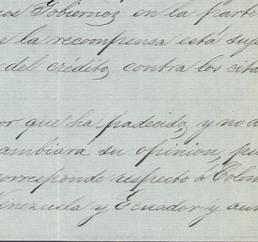 os Gobiernos en la parte
e la recompensa está suje
del crédito contra los cita
or que ha padecido, y no d
ambiara su opinion, pu
corresponde respecto á Colom
Venezuela y Ecuador y aun